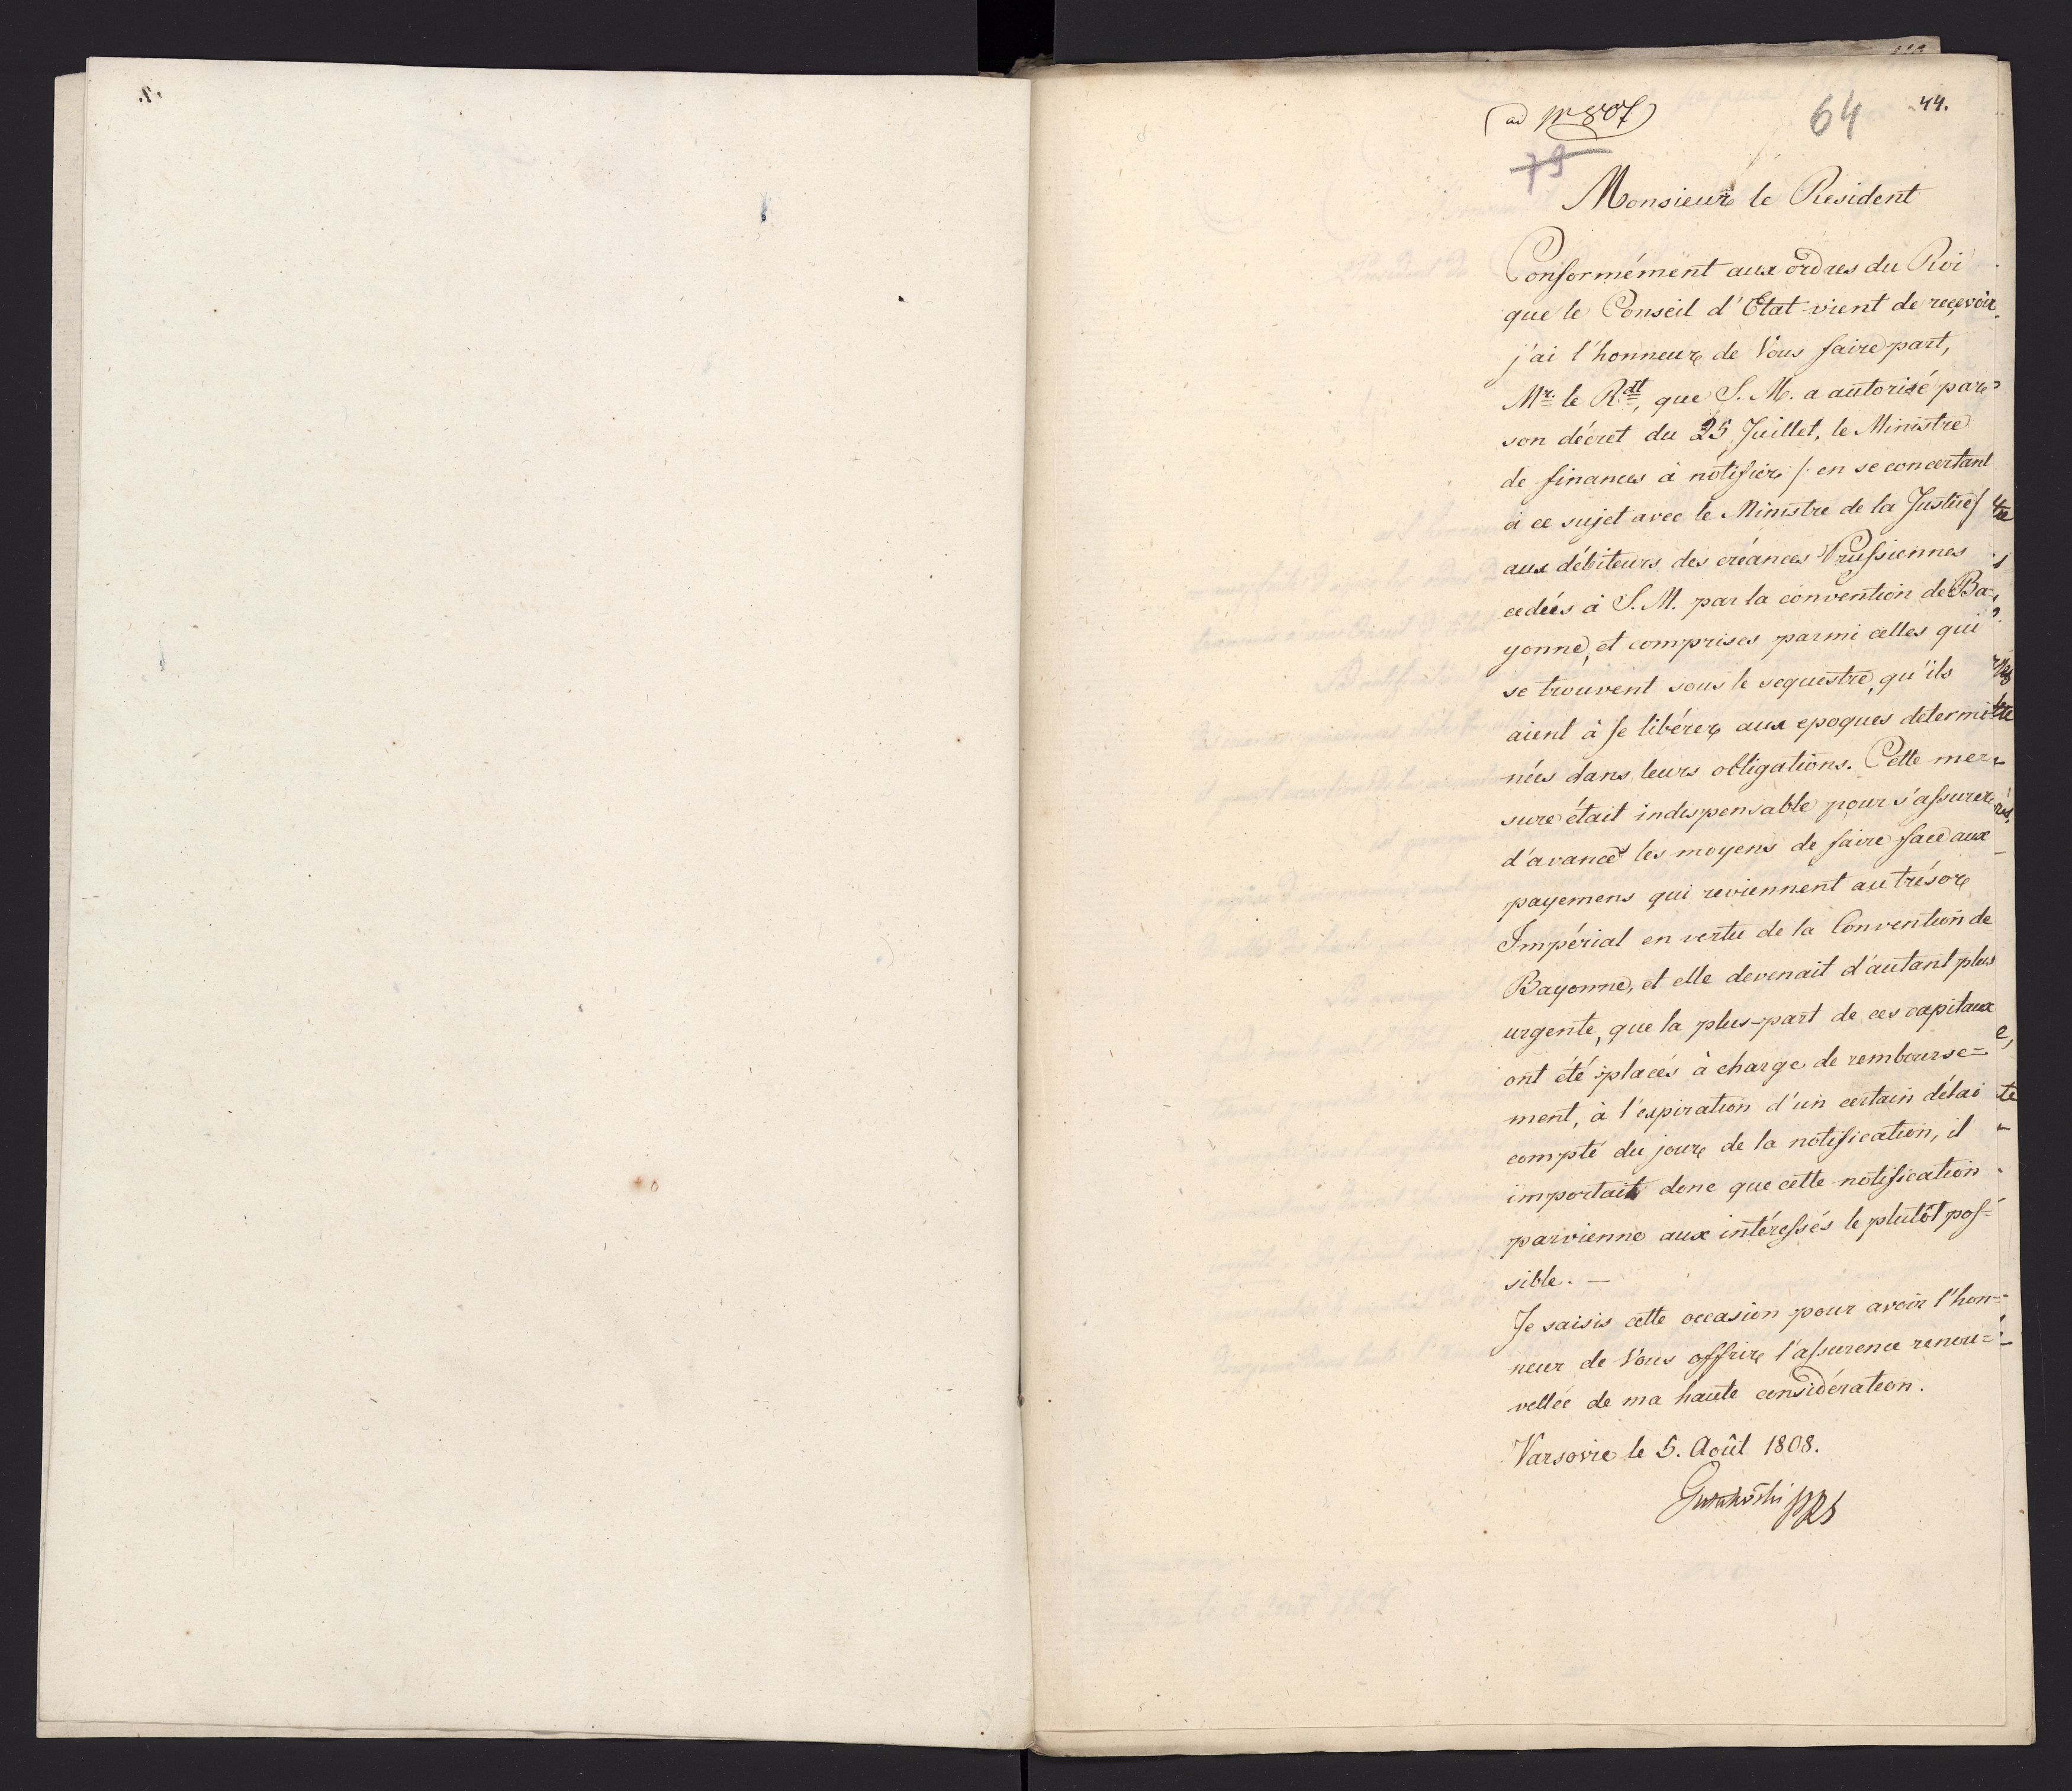 (ad nr 807)
64
44.
79
Monsieur le Resident
Conformément aux ordres du Roi
que le Conseil d'Etat vient de reçevoir,
j'ai l'honneur de Vous faire part,
Mr. le Rdt, que S. M. a autorisé par
son décret du 25 Juillet, le Ministre
de finances à notifier /: en se concertant
à ce sujet avec le Ministre de la Justice/
aux débiteurs des créances Prussiennes
cedées à S. M. par la convention de Ba-
yonne, et comprises parmi celles qui
se trouvent sous le sequestre, qu'ils
aient à se libérer aux epoques determi-
nées dans leurs obligations. Cette me-
sure était indispensable pour s'assurer
d'avance les moyens de faire face aux
payemens qui reviennent au trésor
Impérial en vertu de la Convention de
Bayonne, et elle devenait d'autant plus
urgente, que la plus-part de ces capitaux
ont été placés à charge de rembourse=
ment, à l'expiration d'un certain délai
compté du jour de la notification, il
importait donc que cette notification
parvienne aux intéressés le plutôt pos=
sible. —
Je saisis cette occasion pour avoir l'hon=
neur de Vous offrir l'assurence renou=
vellée de ma haute considération.
Varsovie le 5. Août 1808.